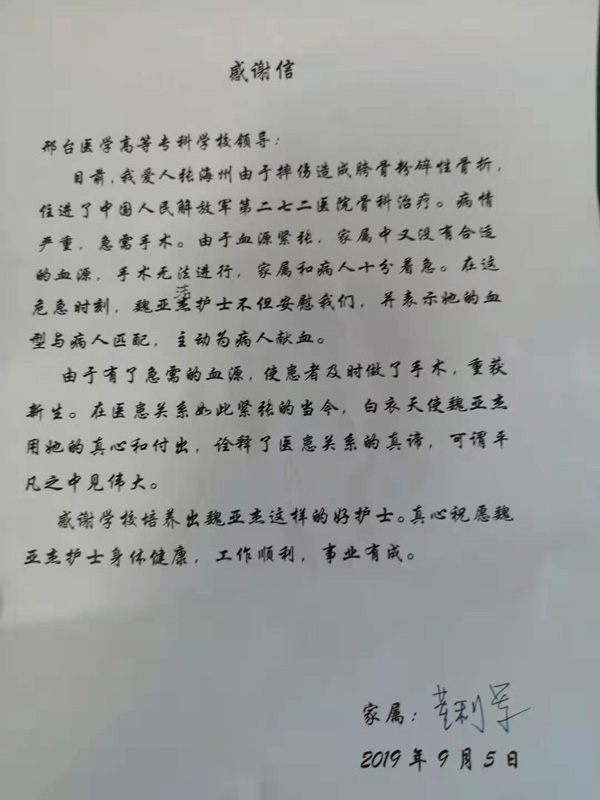 感谢信
邢台医学高等专科学校领导：
目前，我爱人张海州由于摔伤造成胯骨粉碎性骨折，
住进了中国人民解放军第二七二医院骨科治疗。病情
严重，急需手术。由于血源紧张，家属中又没有合适
的血源，手术无法进行，家属和病人十分着急。在这
危急时刻，魏亚杰护士不但安慰我们，并表示她的血
型与病人匹配，主动为病人献血。
由于有了急需的血源，使患者及时做了手术，重获
新生。在医患关系如此紧张的当今，白衣天使魏亚杰
用她的真心和付出，诠释了医患关系的真谛，可谓平
凡之中见伟大。
感谢学校培养出魏亚杰这样的好护士。真心祝愿魏
亚杰护士身体健康，工作顺利，事业有成。
家属：
2019年9月5日